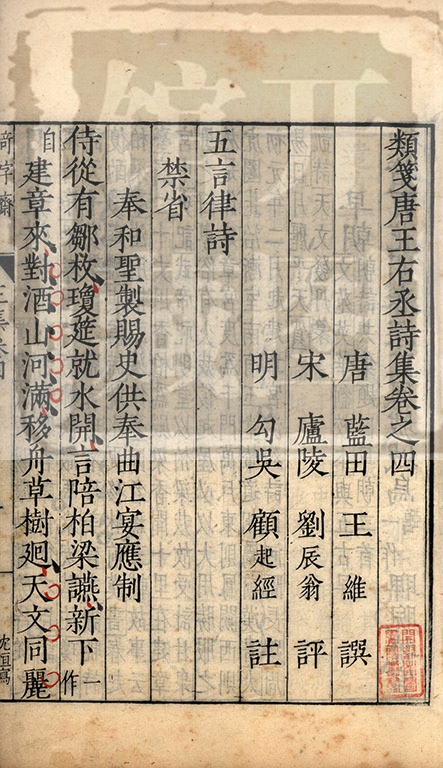 類箋唐王右丞詩集卷之四
唐 藍田 王維 譔
宋 廬陵 劉辰翁 評
明 勾吳 顧起經 註
五言律詩
禁省
奉和聖製賜史供奉曲江宴應制
侍從有鄒枚瓊筵就水開言陪柏梁讌新下一作
自建章來對酒山河滿移舟草樹廻天文同麗